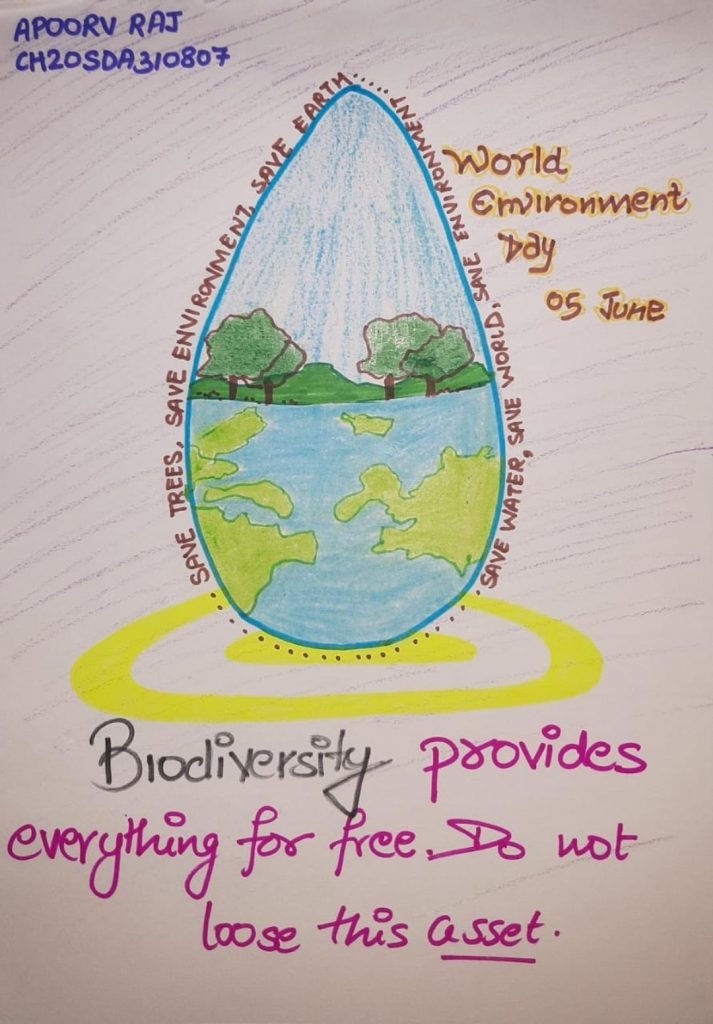 APOORV RAJ
CH20SDA310807
SAVE TREES, SAVE ENVIRONMENT, SAVE EARTH.....
SAVE WATER, SAVE WORLD, SAVE ENVIRONMENT
World
Environment
Day
05 June
Biodiversity provides
everything for free. Do not
loose this asset.